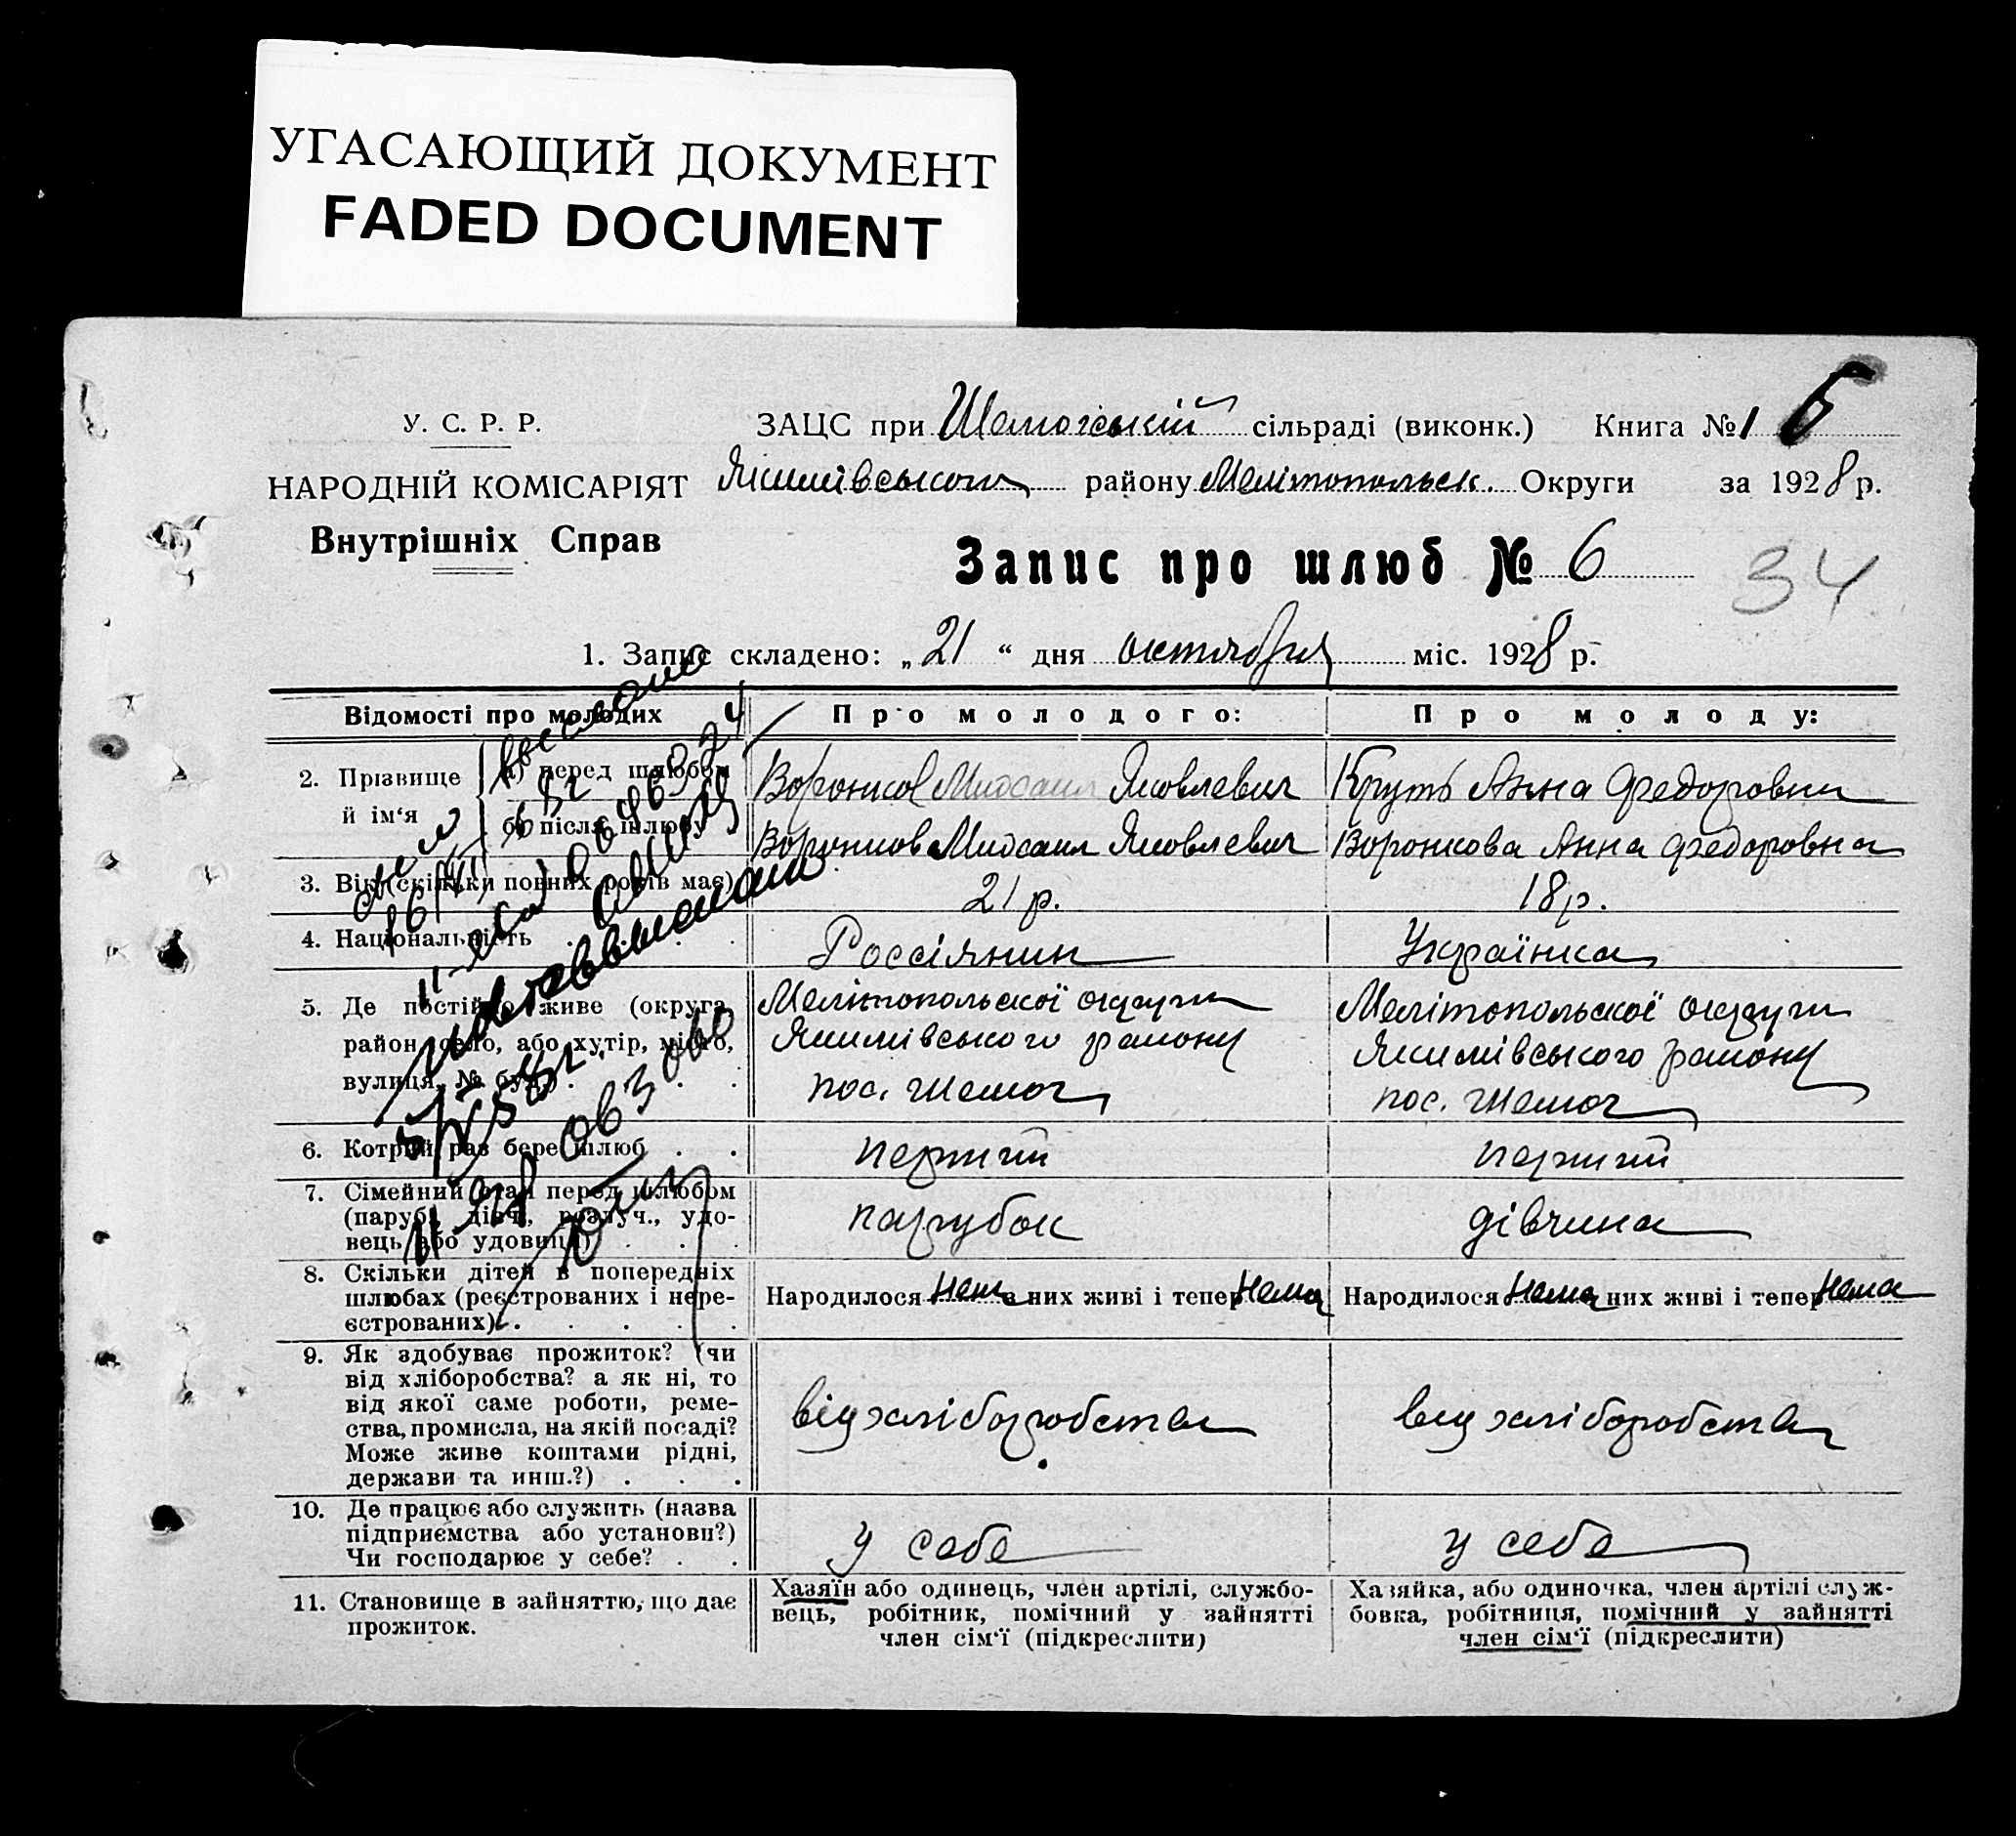 УГАСАЮЩИЙ ДОКУМЕНТ
FADED DOCUMENT
У. С. Р. Р.
НАРОДНІЙ КОМІСАРІЯТ
Внутрішніх Справ
ЗАЦС при сільраді (виконк.) Книга № 1 6
Якимівського району Мелітопольськ. Округи за 1928 р.
Запис про шлюб № 6
34
1. Запис складено: „21“ дня октября міс. 1928 р.
Відомості про молодих
Про молодого:
Про молоду:
2. Прізвище й ім‘я
а) перед шлюбом
Воронков Михаил Яковлевич
Круть Анна Федоровни
б) після шлюбу
Воронков Михаил Яковлевич
Воронкова Анна Федоровна
3. Вік (скільки повних років має)
21 р.
18 р.
4. Національність
Россіянин
Українка
5. Де постійно живе (округа,
район, село, або хутір, місто,
вулиця, № буд.)
Мелітопольскої округи
Якимівського району
пос. Шемот
Мелітопольскої округи
Якимівського району
пос. Шемот
6. Котрий раз бере шлюб
перший
перший
7. Сімейний стан перед шлюбом
(паруб., дівч., розлуч., удо-
вець або удовиця)
парубок
дівчина
8. Скільки дітей в попередніх
шлюбах (реєстрованих і нере-
єстрованих)
Народилося нема з них живі і тепер нема
Народилося нема них живі і тепер нема
9. Як здобуває прожиток? (чи
від хліборобства? а як ні, то
від якої саме роботи, реме-
ства, промисла, на якій посаді?
Може живе коштами рідні,
держави та инш.?)
від хліборобства
від хліборобства
10. Де працює або служить (назва
підприємства або установи?)
Чи господарює у себе?
у себе
у себе
11. Становище в зайняттю, що дає
прожиток.
Хазяїн або одинець, член артілі, службо-
вець, робітник, помічний у зайнятті
член сім‘ї (підкреслити)
Хазяйка, або одиночка, член артілі служ-
бовка, робітниця, помічний у зайнятті
член сім‘ї (підкреслити)